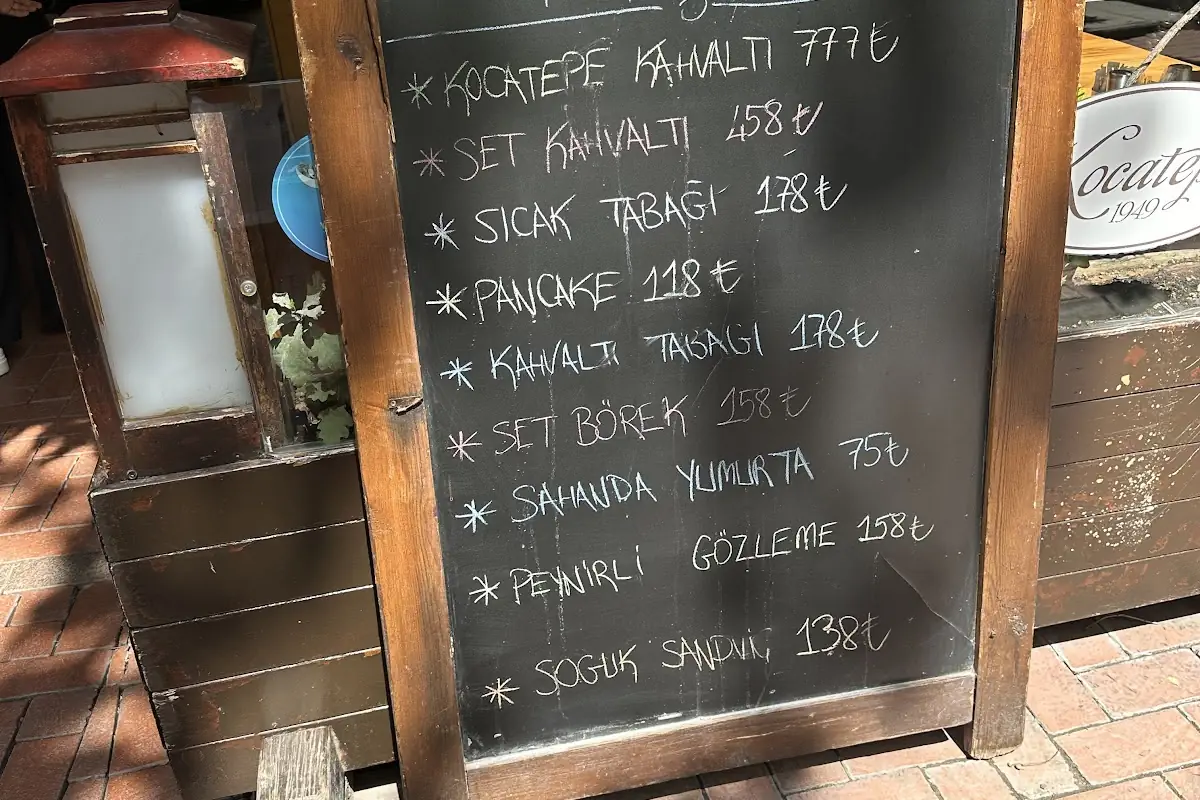 *KOCATEPE KAHVALTI 777₺
*SET KAHVALTI 458₺
*SICAK TABAĞI 178₺
*PANCAKE 118₺
*KAHVALTI TABAGI 178₺
*SET BÖREK 158₺
*SAHANDA YUMURTA 75₺
*PEYNİRLİ GÖZLEME 158₺
*SOGUK SANDVİÇ 138₺
1949